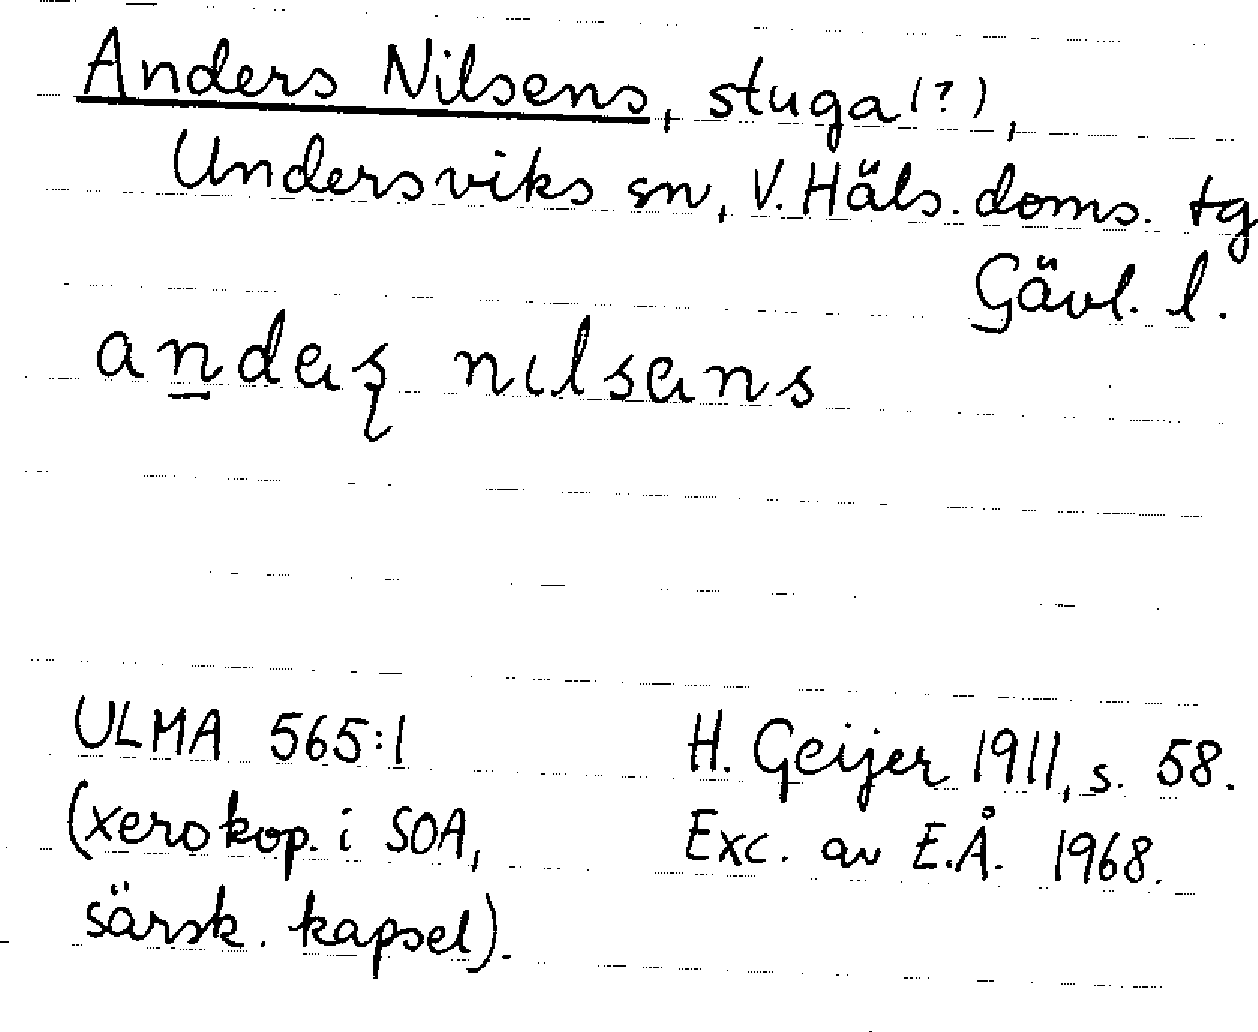 Anders Nilsens, stuga (?),
Undersviks sn, V. Häls. doms. tg
Gävl. l.
andaʂ nılsans
ULMA 565:1
(xerokop. i SOA,
särsk. kapsel).
H. Geijer 1911, s. 58.
Exc. av E.Å. 1968.